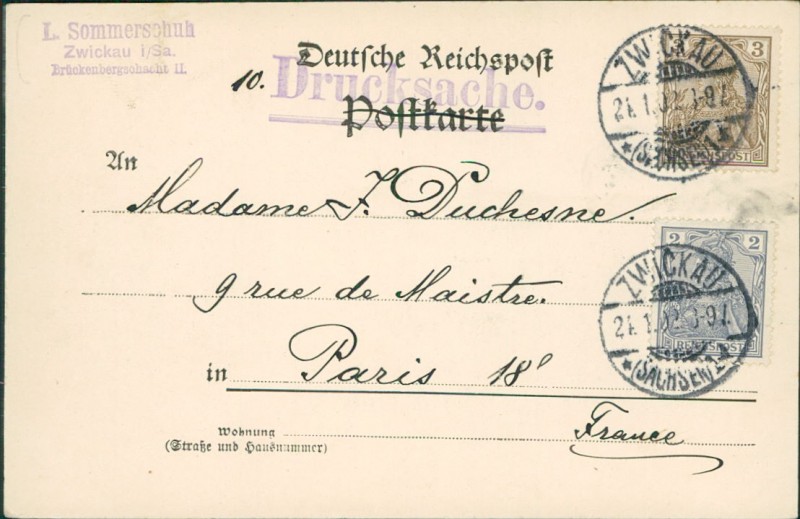 L. Sommerschuh
Zwickau i/Sa.
Brückenbergschacht II.
Deutsche Reichspost
10.
Drucksache.
Postkarte
An
Madame F. Duchesne.
9 rue de Maistre.
in Paris 18e
Wohnung
(Straße und Hausnummer)
France
3
REICHSPOST
ZWICKAU
21.1.02. 8-9V.
* (SACHSEN) 1 *
2 2
REICHSPOST
ZWICKAU
21.1.02. 8-9V.
* (SACHSEN) 1 *